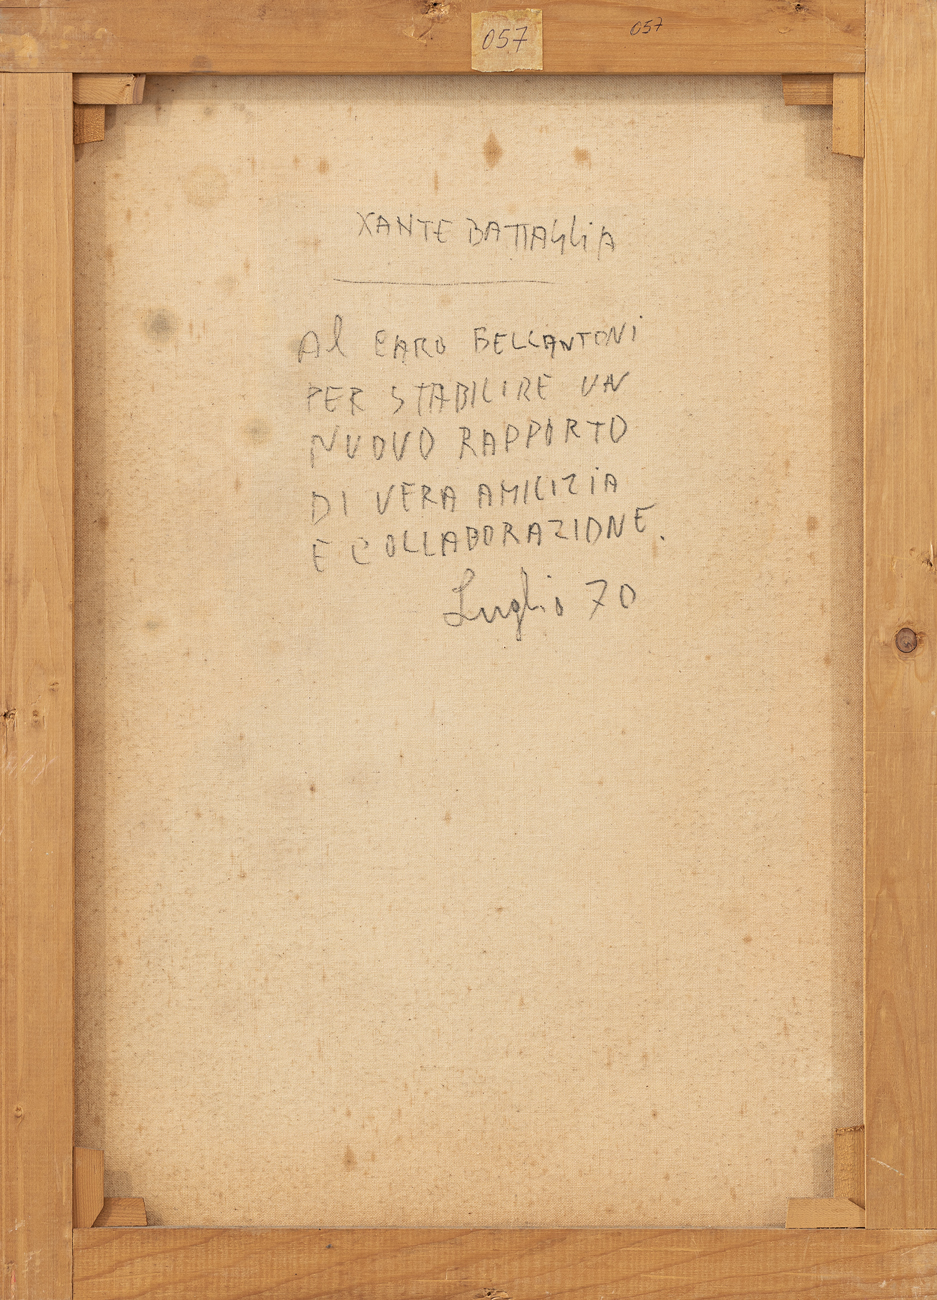 057
057
XANTE BATTAGLIA
Al CARO BELLANTONI
PER STABILIRE UN
NUOVO RAPPORTO
DI VERA AMICIZIA
E COLLABORAZIONE.
Luglio 70